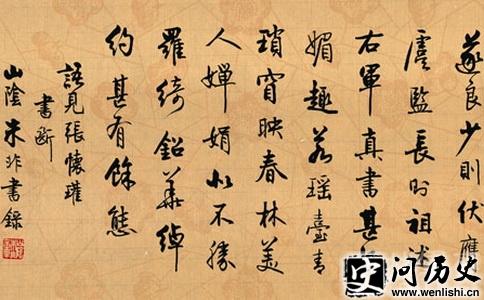 遂良少則伏膺
虞監長則祖述
右軍真書甚
媚趣若瑶臺青
瑣窅映春林美
人嬋娟似不勝
羅綺鉛華綽
約甚有餘態
語見張懷瓘
書斷
山陰朱非書錄
史 问历史
www.wenlishi.cn